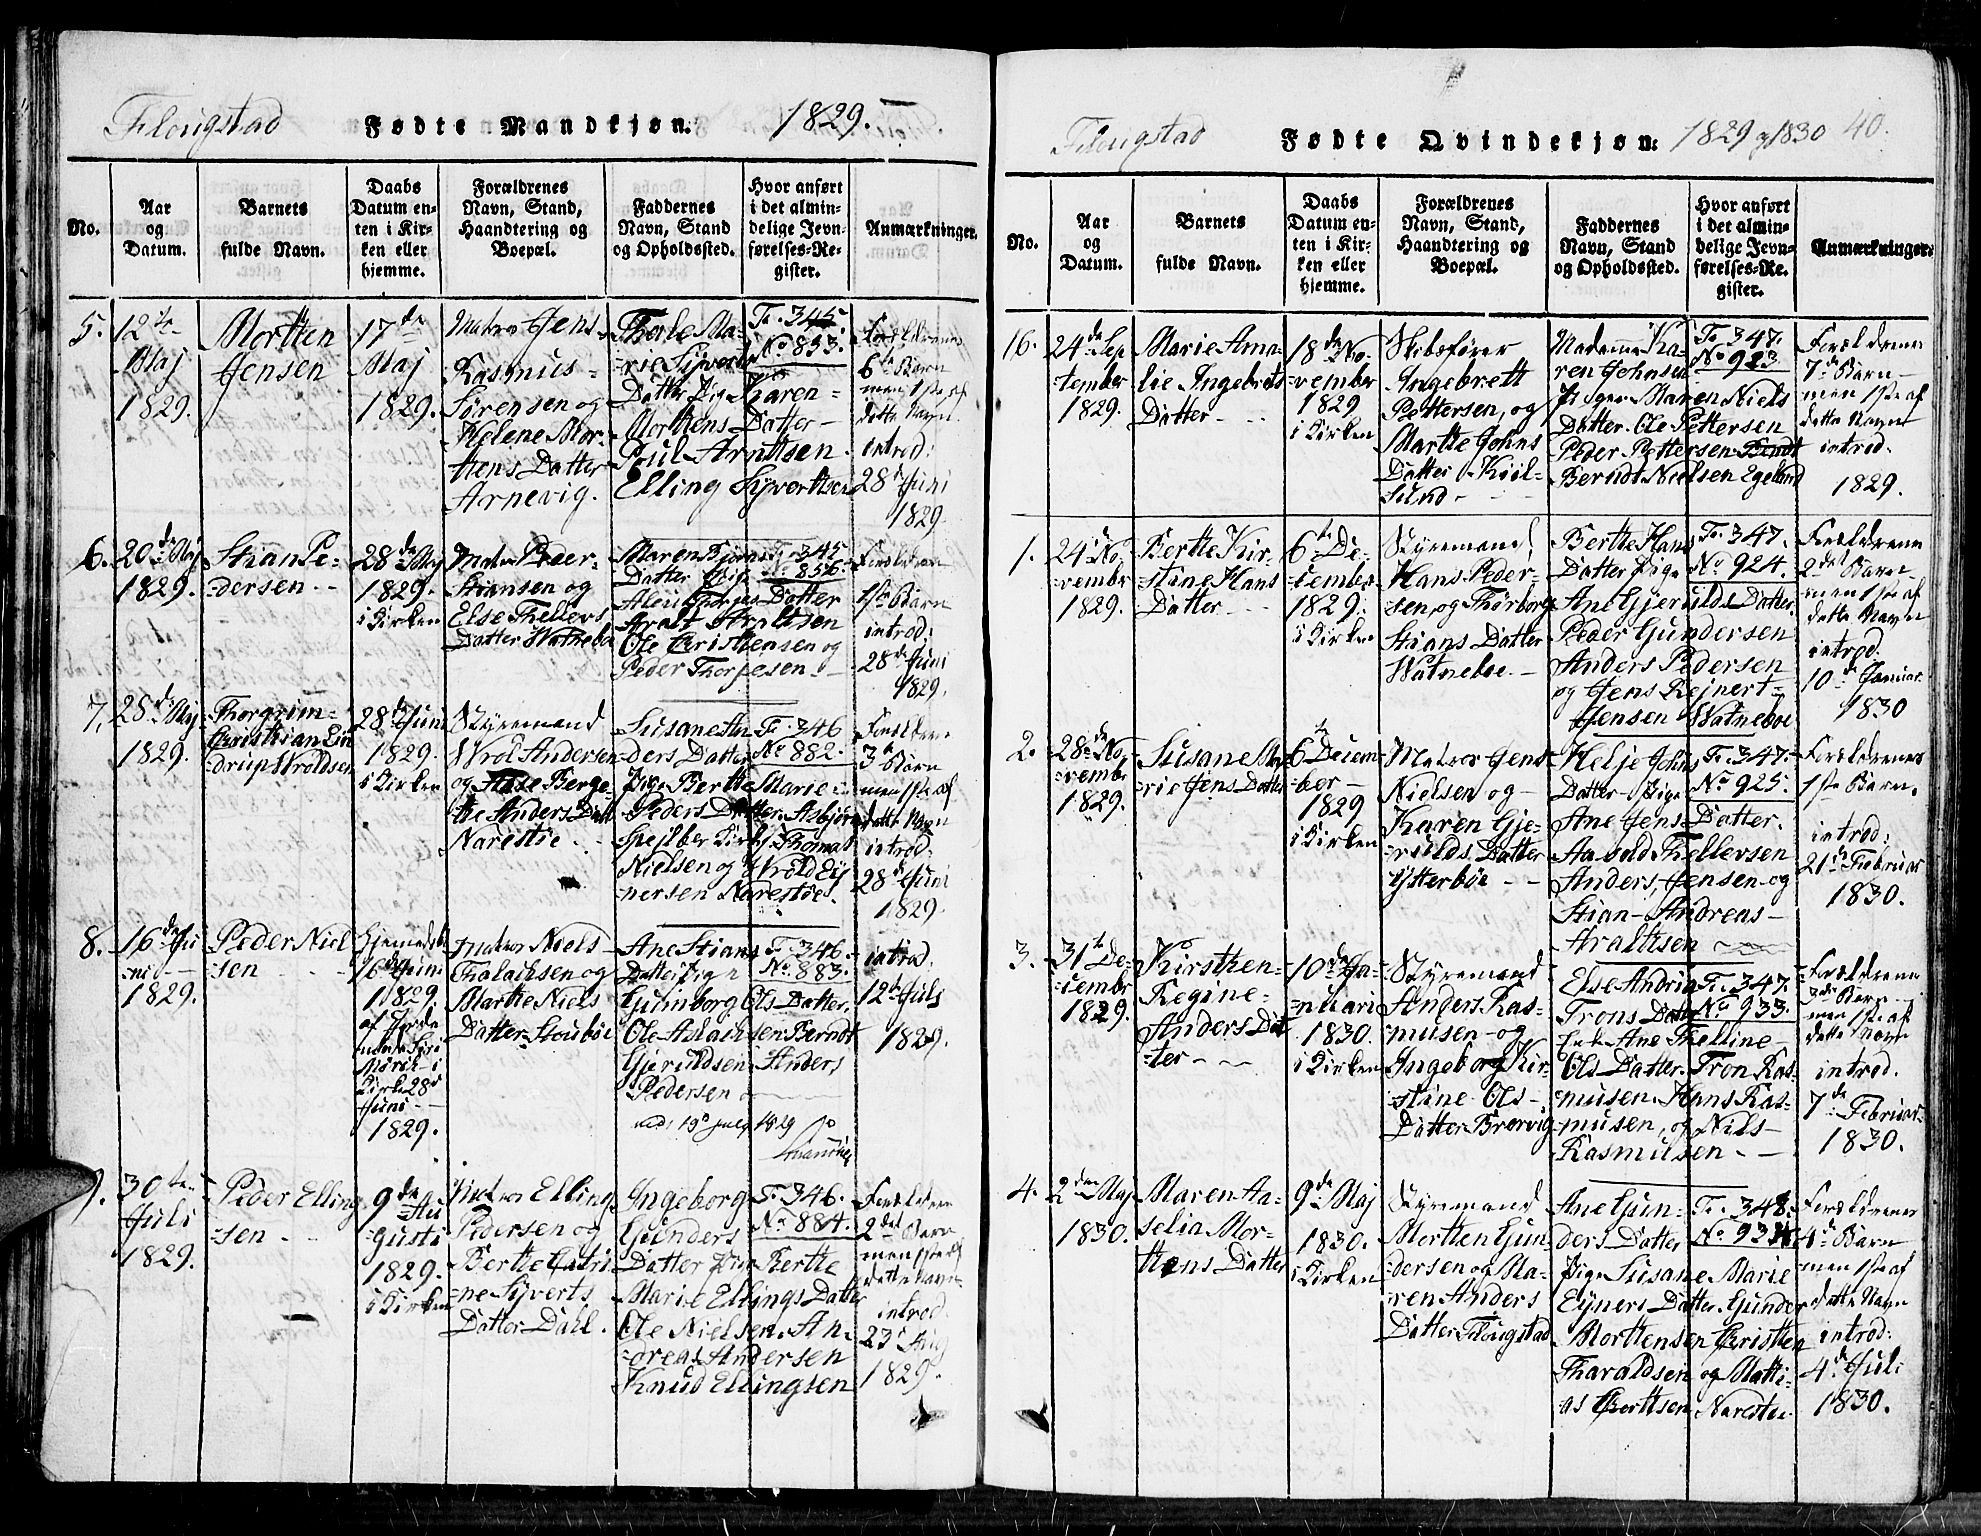 Flougstad Fødte Mandkjøn. 1829.
No.
Aar
og
Datum.
Barnets
fulde Navn.
Daabs
Datum en-
ten i Kir-
ken eller
hjemme.
Forældrenes
Navn, Stand,
Haandtering og
Boepæl.
Faddernes
Navn, Stand
og Opholdssted.
Hvor anført
i det almin-
delige Jevn-
førelses-Re-
gister.
Anmærkninger.
5.
12te
Maj
1829.
Mortten
Jensen
17de
Maj
1829.
Matros Jens
Rasmus-
Sørensen og
Helene Mor-
tens Datter
Arnevig.
Therle Ma-
rie Syverts
Datter Pige Karen
Morthens Datter
Poul Arntsen
Elling Syvertsen
Fo. 345.
No. 853.
Forældrenes
6te Barn
men 1ste af
dette Navn
introd:
28de Juni
1829.
6.
20de Maj
1829.
Stian Pe-
dersen
28de Maj
1829.
i Kirken
Matros Peder
Stiansen og
Else Thellevs
Datter Watneboe
Maren Bjørns
Datter Pige
Datter
Aralt Araltsen
Ole Christensen og
Peder Thorgesen
Fo. 345
No. 856.
Forældrenes
1ste Barn
introd:
28de Juni
1829.
7.
28de Maj
1829.
Thorgrim
Christian Lin
drup Wroldsen
28de Juni
1829.
i Kirken
Styrmand
Wrol Andersen
og Berge-
the Anders Datt
Narestøe
Susane An
ders Datter
Pige Berthe Marie
Peders Datter. Asbjørn
Thomas
Nielsen og Wrold Ey
nersen Narestøe.
Fo. 346
No. 882.
Forældrenes
3de Barn
men 1ste af
dette Navn
introd:
28de Juni
1829.
8.
16de Ju
ni
1829.
Peder Niel
sen
Hjemmedøbt
16de Juni
1829.
i
Kirken 28de
Juni
1829.
Matros Niels
og
Marthe Niels
Datter Stouboe
Ane Stians
Datter Pige
Gunborg Ols Datter.
Ole Aslachsen Berndt
Gjeruldsen Anders
Pedersen
Fo. 346.
No. 883.
introd:
12te Juli
1829.
9.
30te
Juli
1829.
Peder Elling
sen
9de Au
gusti
1829.
i Kirken
Matros Elling
Pedersen og
Berthe Catri
ne Syverts
Datter Dahl.
Ingeborg
Gunders
Datter Pige Berthe
Marie Ellings Datter
Ole Nielsen. An-
dreas Andersen
Knud Ellingsen
Fo. 346.
No. 884.
Forældrenes
2det Barn
men 1ste af
dette Navn
introd.
23de Aug
1829.
Flougstad Fødte Qvindekjøn: 1829 og 1830 40.
No.
Aar
og
Datum.
Barnets
fulde Navn.
Daabs
Datum en-
ten i Kir-
ken eller
hjemme.
Forældrenes
Navn, Stand,
Haandtering og
Boepæl.
Faddernes
Navn, Stand
og Opholdssted.
Hvor anført
i det almin-
delige Jevn-
førelses-Re-
gister.
Anmærkninger.
16.
24de Sep
tember
1829.
Marie Ama
lie Ingebrets
Datter
18de No-
vember
1829
i Kirken
Skibsfører
Ingebrett
Pettersen, og
Marthe Johns
Datter Kiil-
sund
Madame Ka
ren Johnsen
Pigen Maren Niels
Datter. Ole Pettersen
Peder Pettersen
Berndt Nielsen Egeland
Fo. 347.
No. 923
Forældrenes
7de Barn
men 1ste af
dette Navn
introd.
1829.
1.
24de No
vembr
1829.
Berthe Kir-
stine Hans
Datter
6te De-
cember
1829.
i Kirken
Styrmand
Hans Peder-
sen, og Thorborg
Stians Datter
Watneboe.
Berthe Hans
Datter Pige
Ane Gjerulds Datter
Peder Gundersen
Anders Pedersen
og Jens Rejnert
Jensen Watneboe
Fo. 347.
No. 924.
Forældrenes
2det Barn
men 1ste af
dette Navn
introd.
10de Januar
1830
2.
28de No
vembr
1829.
Susane Ma
rie Jens Datter
6te Decem
ber
1829
i Kirken
Matros Jens
Nielsen og
Karen Gje-
rulds Datter
Ytterbøe
Helje Johns
Datter Pige
Ane Jens Datter.
Aasuld Thellevsen
Anders, Jensen og
Stian Andreas
Araltsen
Fo. 347.
No. 925.
Forældrenes
1ste Barn.
introd:
21de Februar
1830.
3.
31te De-
cembr
1829.
Kirsthen
Regine
Anders Dat
ter
10de Ja-
nuari
1830.
i Kirken
Styrmand
Anders Ras-
musen og
Ingeborg Kir-
stine Ols
Datter Brørvig
Else Andria
Trons Datter
Enke Ane Thelline
Ols Datter. Tron Ras-
musen. Hans Ras-
musen, og Niels
Rasmusen
Fo. 347.
No. 933.
Forældrenes
3de Barn
men 1ste af
dette Navn
introd.
7de Februar
1830.
4.
2den Maj
1830.
Maren Aa-
selia Mor-
thens Datter
9de Maj
1830.
i Kirken
Styrmand
Mortten Gun-
dersen og Ma-
ren Anders
Datter Flougstad
Ane Gun-
ders Datter
Pige Susane Marie
Eyners Datter. Gunder
Morttensen Christten
Tharaldsen og Matti-
as Gjerttsen Narestøe.
Fo. 348.
No. 934
Forældrenes
4de Barn
men 1ste af
dette Navn
introd:
4de Juli
1830.